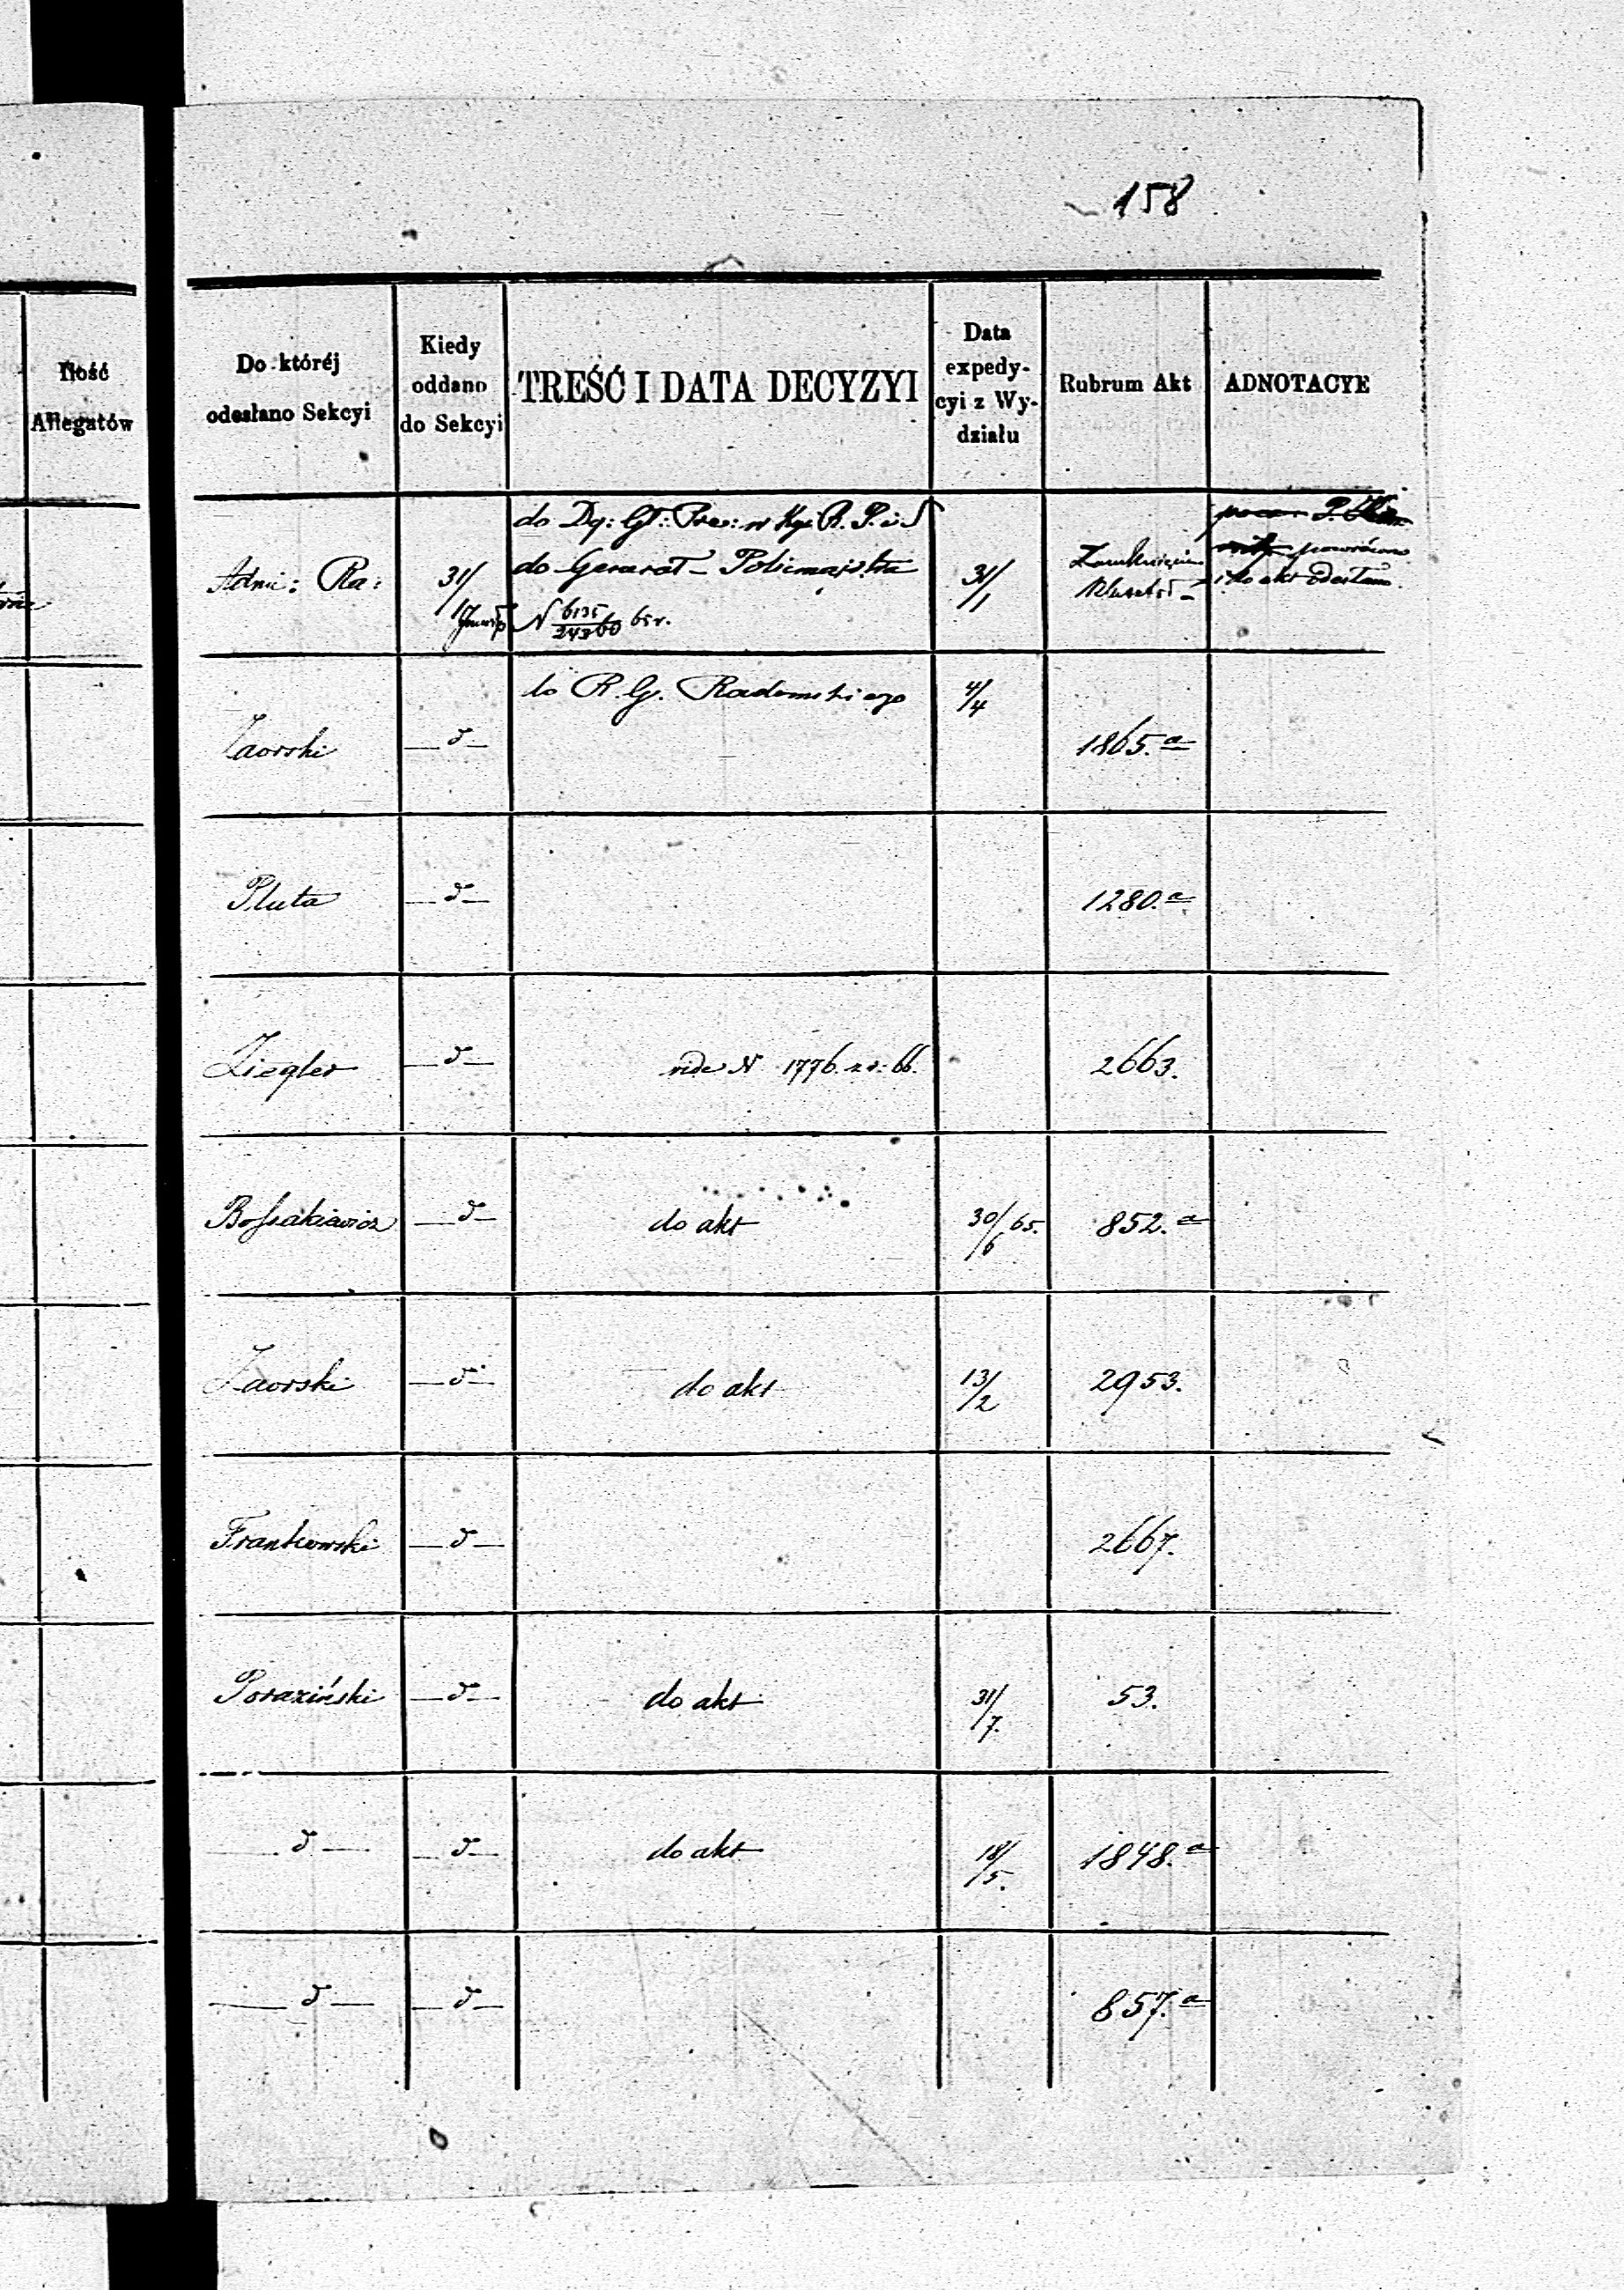 158
Ilość
Allegatów
Do któréj
odesłano Sekcyi
Kiedy
oddano
do Sekcyi
TREŚĆ I DATA DECYZYI
Data
expedy-
cyi z Wy-
działu
Rubrum Akt
ADNOTACYE
Admi: Ra:
31/1
do Dy: Gł: Prez: w Kr. R. P. i S
do Generał-Policmajstra
N 6135/24360 65 r.
31/1
powrócono
i do akt odesłano.
Zaorski
— d —
do R. G. Radomskiego
4/4
1865.a
Pluta
— d —
1280.a
Ziegler
— d —
vide N 1776. z r. 66.
2663.
Bossakiewicz
— d —
do akt
30/6 65.
852.a
Zaorski
— d —
do akt
13/2
2953.
Frankowski
— d —
2667.
Poraziński
— d —
do akt
31/7.
53.
— d —
— d —
do akt
18/5.
1848.a
— d —
— d —
857.a